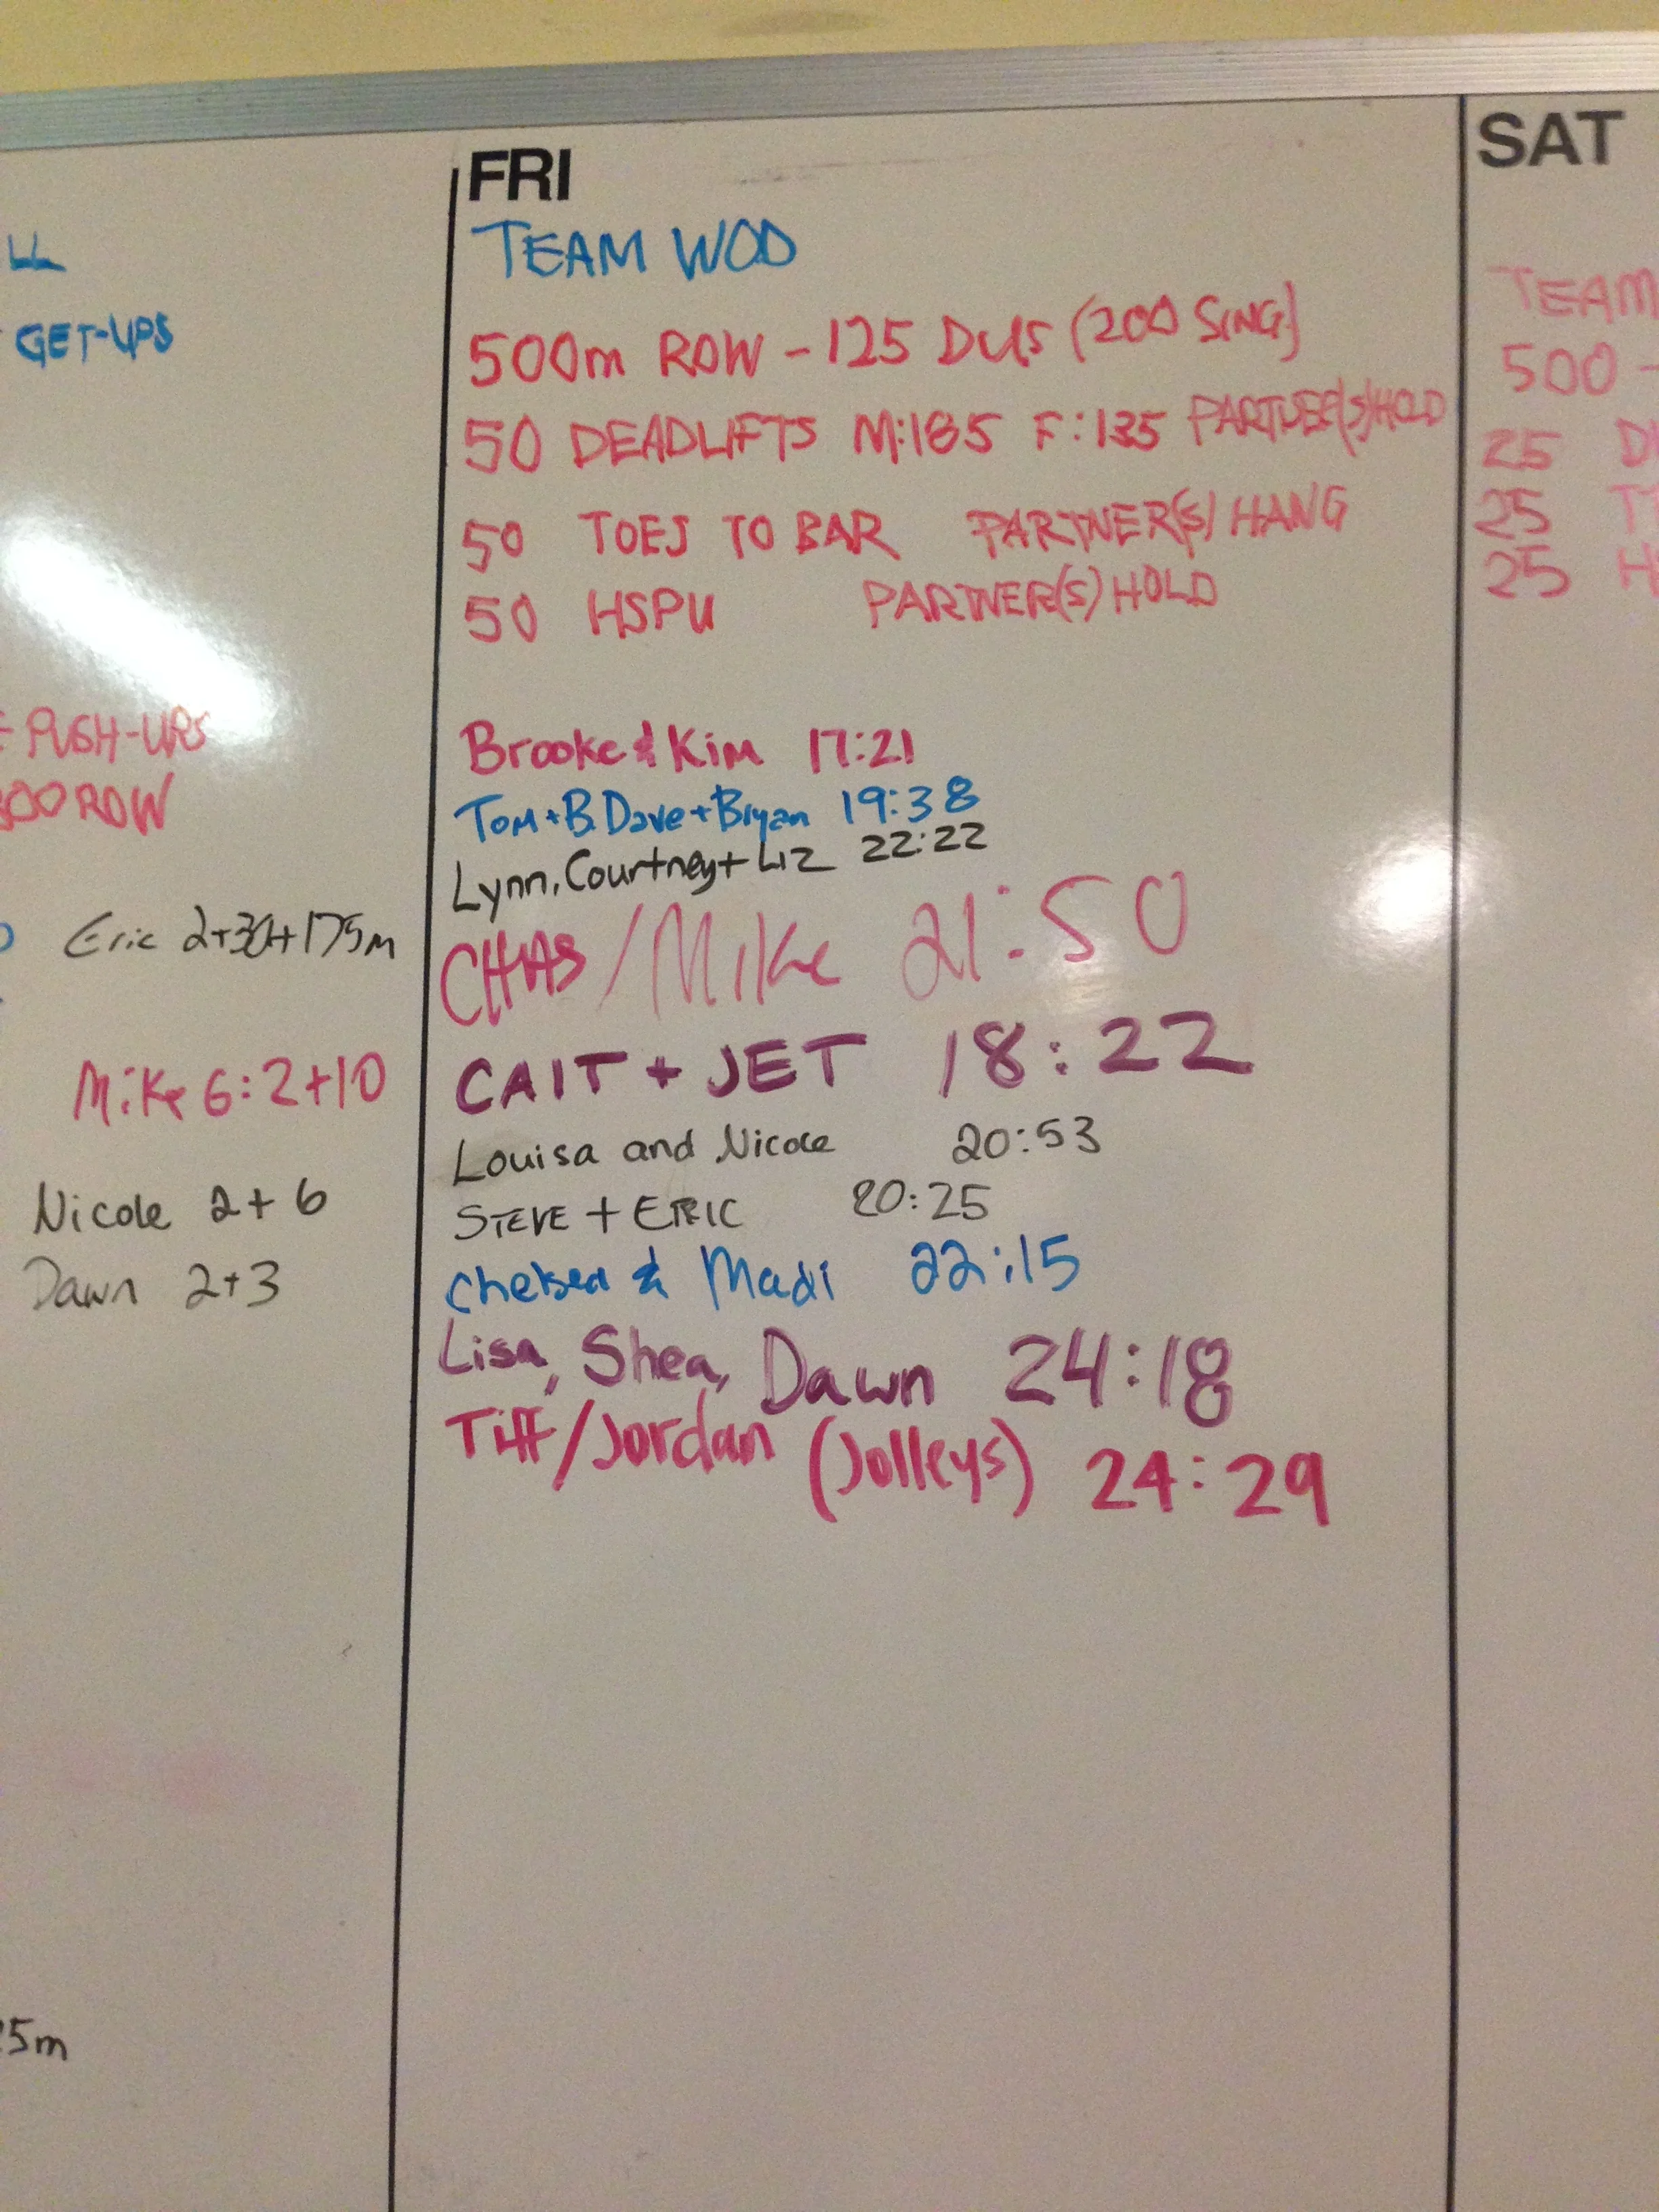 LL
GET-UPS
PUSH-UPS
ROW
Eric 2+30+175m
Mike 6:2+10
Nicole 2+6
Dawn 2+3
5m
FRI
TEAM WOD
500m ROW - 125 DUS (200 SING)
50 DEADLIFTS M:185 F:135 PARTNER(S) HOLD
50 TOES TO BAR PARTNER(S) HANG
50 HSPU PARTNER(S) HOLD
Brooke & Kim 17:21
Tom + B. Dave + Bryan 19:38
Lynn, Courtney + Liz 22:22
CHAS / Mike 21:50
CAIT + JET 18:22
Louisa and Nicole 20:53
STEVE + ERIC 20:25
Chelsea & Madi 22:15
Lisa, Shea, Dawn 24:18
Tiff/Jordan (Jolleys) 24:29
SAT
TEAM
500 -
25
25
25